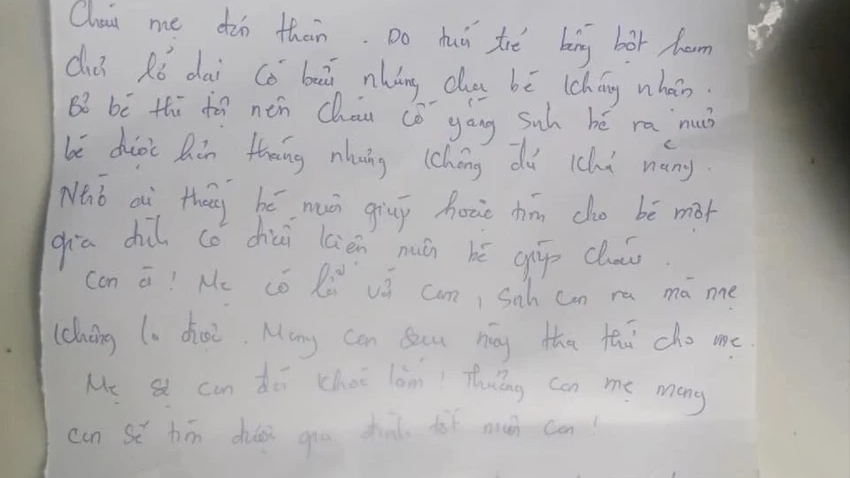 Cháu mẹ đơn thân. Do tuổi trẻ bồng bột ham
chơi lố dại có bầu nhưng cha bé không nhận.
Bỏ bé thì tội nên cháu cố gắng sinh bé ra nuôi
bé được hơn tháng nhưng không đủ khả năng.
Nhờ ai thấy bé nuôi giúp hoặc tìm cho bé một
gia đình có điều kiện nuôi bé giúp cháu.
Con à! Mẹ có lỗi với con, sinh con ra mà mẹ
không lo được. Mong con sau này tha thứ cho mẹ.
Mẹ sợ con đói khóc lắm! Thương con mẹ mong
con sẽ tìm được gia đình tốt nuôi con!